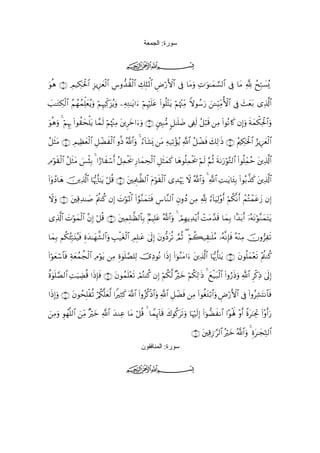 سورة: الجمعة
﷽
يُسَبِّحُ لِلَّهِ مَا فِي السَّمَاوَاتِ وَمَا فِي الْأَرْضِ الْمَلِكِ الْقُدُّوسِ الْعَزِيزِ الْحَكِيمِ ﴿١﴾ هُوَ
الَّذِي بَعَثَ فِي الْأُمِّيِّينَ رَسُولًا مِّنْهُمْ يَتْلُو عَلَيْهِمْ آيَاتِهِ وَيُزَكِّيهِمْ وَيُعَلِّمُهُمُ الْكِتَابَ
وَالْحِكْمَةَ وَإِن كَانُوا مِن قَبْلُ لَفِي ضَلَالٍ مُّبِينٍ ﴿٢﴾ وَآخَرِينَ مِنْهُمْ لَمَّا يَلْحَقُوا بِهِمْ ۚ وَهُوَ
الْعَزِيزُ الْحَكِيمُ ﴿٣﴾ ذَٰلِكَ فَضْلُ اللَّهِ يُؤْتِيهِ مَن يَشَاءُ ۚ وَاللَّهُ ذُو الْفَضْلِ الْعَظِيمِ ﴿٤﴾ مَثَلُ
الَّذِينَ حُمِّلُوا التَّوْرَاةَ ثُمَّ لَمْ يَحْمِلُوهَا كَمَثَلِ الْحِمَارِ يَحْمِلُ أَسْفَارًا ۚ بِئْسَ مَثَلُ الْقَوْمِ
الَّذِينَ كَذَّبُوا بِآيَاتِ اللَّهِ ۚ وَاللَّهُ لَا يَهْدِي الْقَوْمَ الظَّالِمِينَ ﴿٥﴾ قُلْ يَا أَيُّهَا الَّذِينَ هَادُوا
إِن زَعَمْتُمْ أَنَّكُمْ أَوْلِيَاءُ لِلَّهِ مِن دُونِ النَّاسِ فَتَمَنَّوُا الْمَوْتَ إِن كُنتُمْ صَادِقِينَ ﴿٦﴾ وَلَا
يَتَمَنَّوْنَهُ أَبَدًا بِمَا قَدَّمَتْ أَيْدِيهِمْ ۚ وَاللَّهُ عَلِيمٌ بِالظَّالِمِينَ ﴿٧﴾ قُلْ إِنَّ الْمَوْتَ الَّذِي
تَفِرُّونَ مِنْهُ فَإِنَّهُ مُلَاقِيكُمْ ۖ ثُمَّ تُرَدُّونَ إِلَىٰ عَالِمِ الْغَيْبِ وَالشَّهَادَةِ فَيُنَبِّئُكُم بِمَا
كُنتُمْ تَعْمَلُونَ ﴿٨﴾ يَا أَيُّهَا الَّذِينَ آمَنُوا إِذَا نُودِيَ لِلصَّلَاةِ مِن يَوْمِ الْجُمُعَةِ فَاسْعَوْا
إِلَىٰ ذِكْرِ اللَّهِ وَذَرُوا الْبَيْعَ ۚ ذَٰلِكُمْ خَيْرٌ لَّكُمْ إِن كُنتُمْ تَعْلَمُونَ ﴿٩﴾ فَإِذَا قُضِيَتِ الصَّلَاةُ
فَانتَشِرُوا فِي الْأَرْضِ وَابْتَغُوا مِن فَضْلِ اللَّهِ وَاذْكُرُوا اللَّهَ كَثِيرًا لَّعَلَّكُمْ تُفْلِحُونَ ﴿١٠﴾ وَإِذَا
رَأَوْا تِجَارَةً أَوْ لَهْوًا انفَضُّوا إِلَيْهَا وَتَرَكُوكَ قَائِمًا ۚ قُلْ مَا عِندَ اللَّهِ خَيْرٌ مِّنَ اللَّهْوِ وَمِنَ
التِّجَارَةِ ۚ وَاللَّهُ خَيْرُ الرَّازِقِينَ ﴿١١﴾
سورة: المنافقون